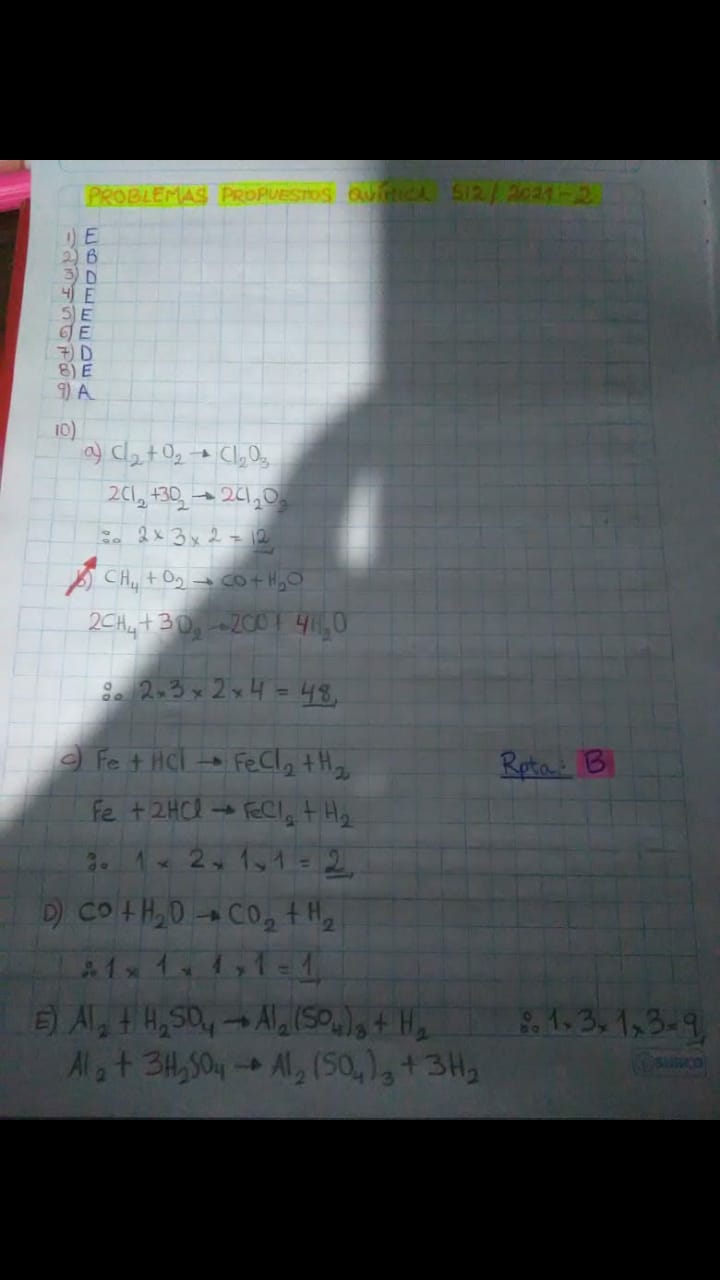 PROBLEMAS PROPUESTOS QUÍMICA S12/2021-2
1) E
2) B
3) D
4) E
5) E
6) E
7) D
8) E
9) A
10)
a) Cl₂ + O₂ → Cl₂O₃
2Cl₂ + 3O₂ → 2Cl₂O₃
∴ 2 x 3 x 2 = 12
b) CH₄ + O₂ → CO + H₂O
2CH₄ + 3O₂ → 2CO + 4H₂O
∴ 2 x 3 x 2 x 4 = 48
c) Fe + HCl → FeCl₂ + H₂
Rpta: B
Fe + 2HCl → FeCl₂ + H₂
∴ 1 x 2 x 1 x 1 = 2
D) CO + H₂O → CO₂ + H₂
∴ 1 x 1 x 1 x 1 = 1
E) Al₂ + H₂SO₄ → Al₂(SO₄)₃ + H₂
∴ 1 x 3 x 1 x 3 = 9
Al₂ + 3H₂SO₄ → Al₂(SO₄)₃ + 3H₂